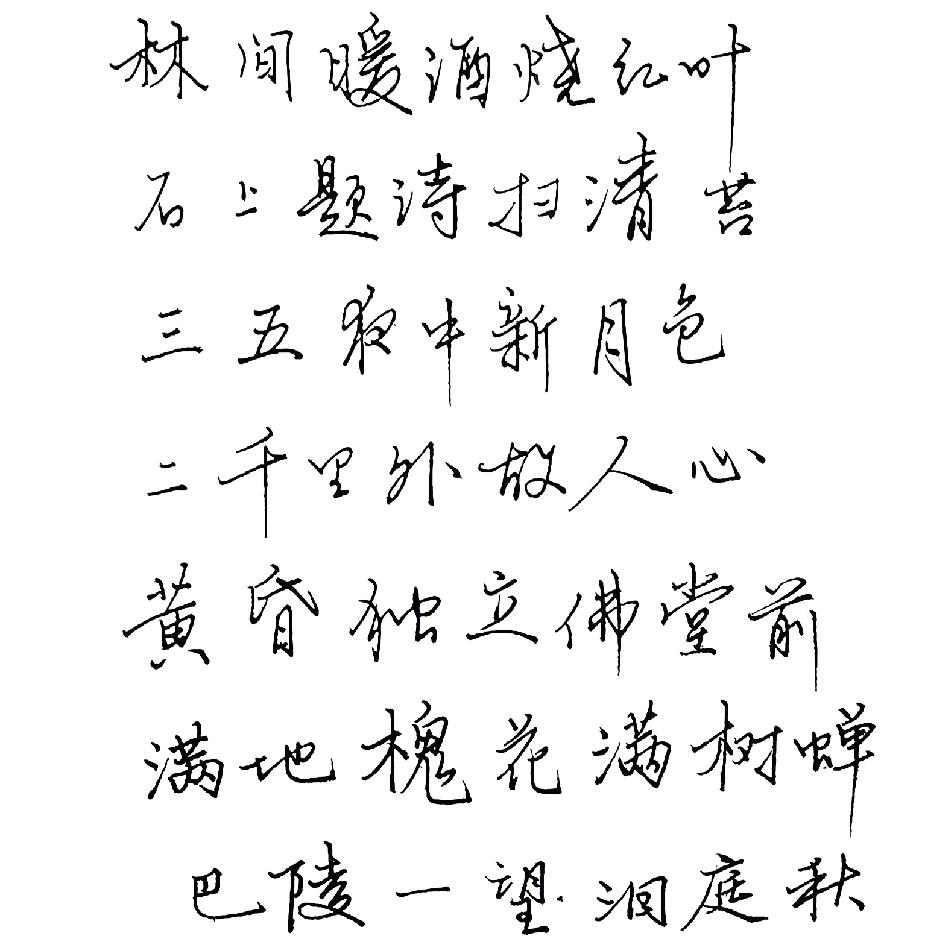 林间暖酒烧红叶
石上题诗扫清苔
三五夜中新月色
二千里外故人心
黄昏独立佛堂前
满地槐花满树蝉
巴陵一望洞庭秋